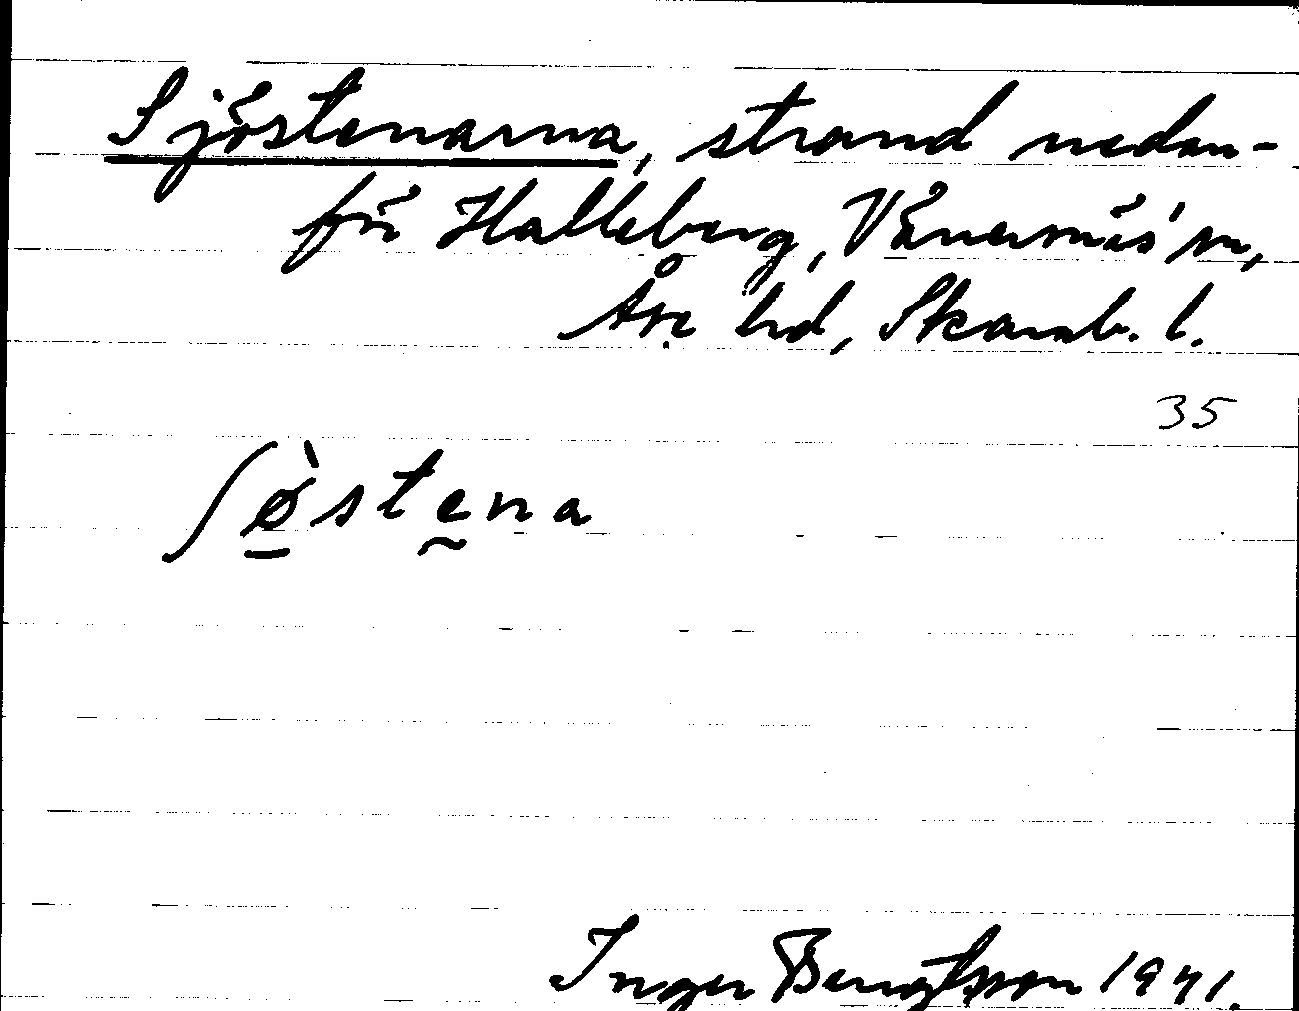 Sjöstenarna, strand nedan-
för Halleberg, Vänersnäs sn,
Åse hd, Skarab. l.
35
ʃø̀stena
Inger Bengtsson 1941.